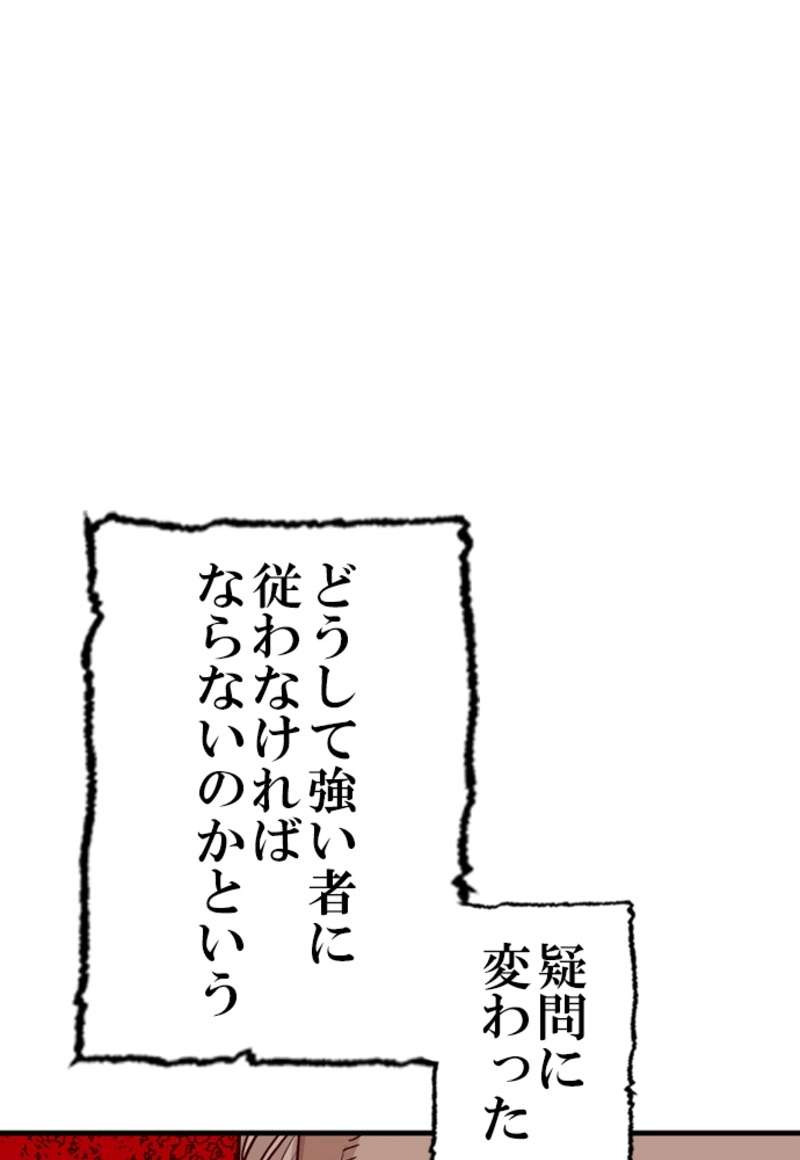 どうして強い者に
従わなければ
ならないのかという
疑問に
変わった